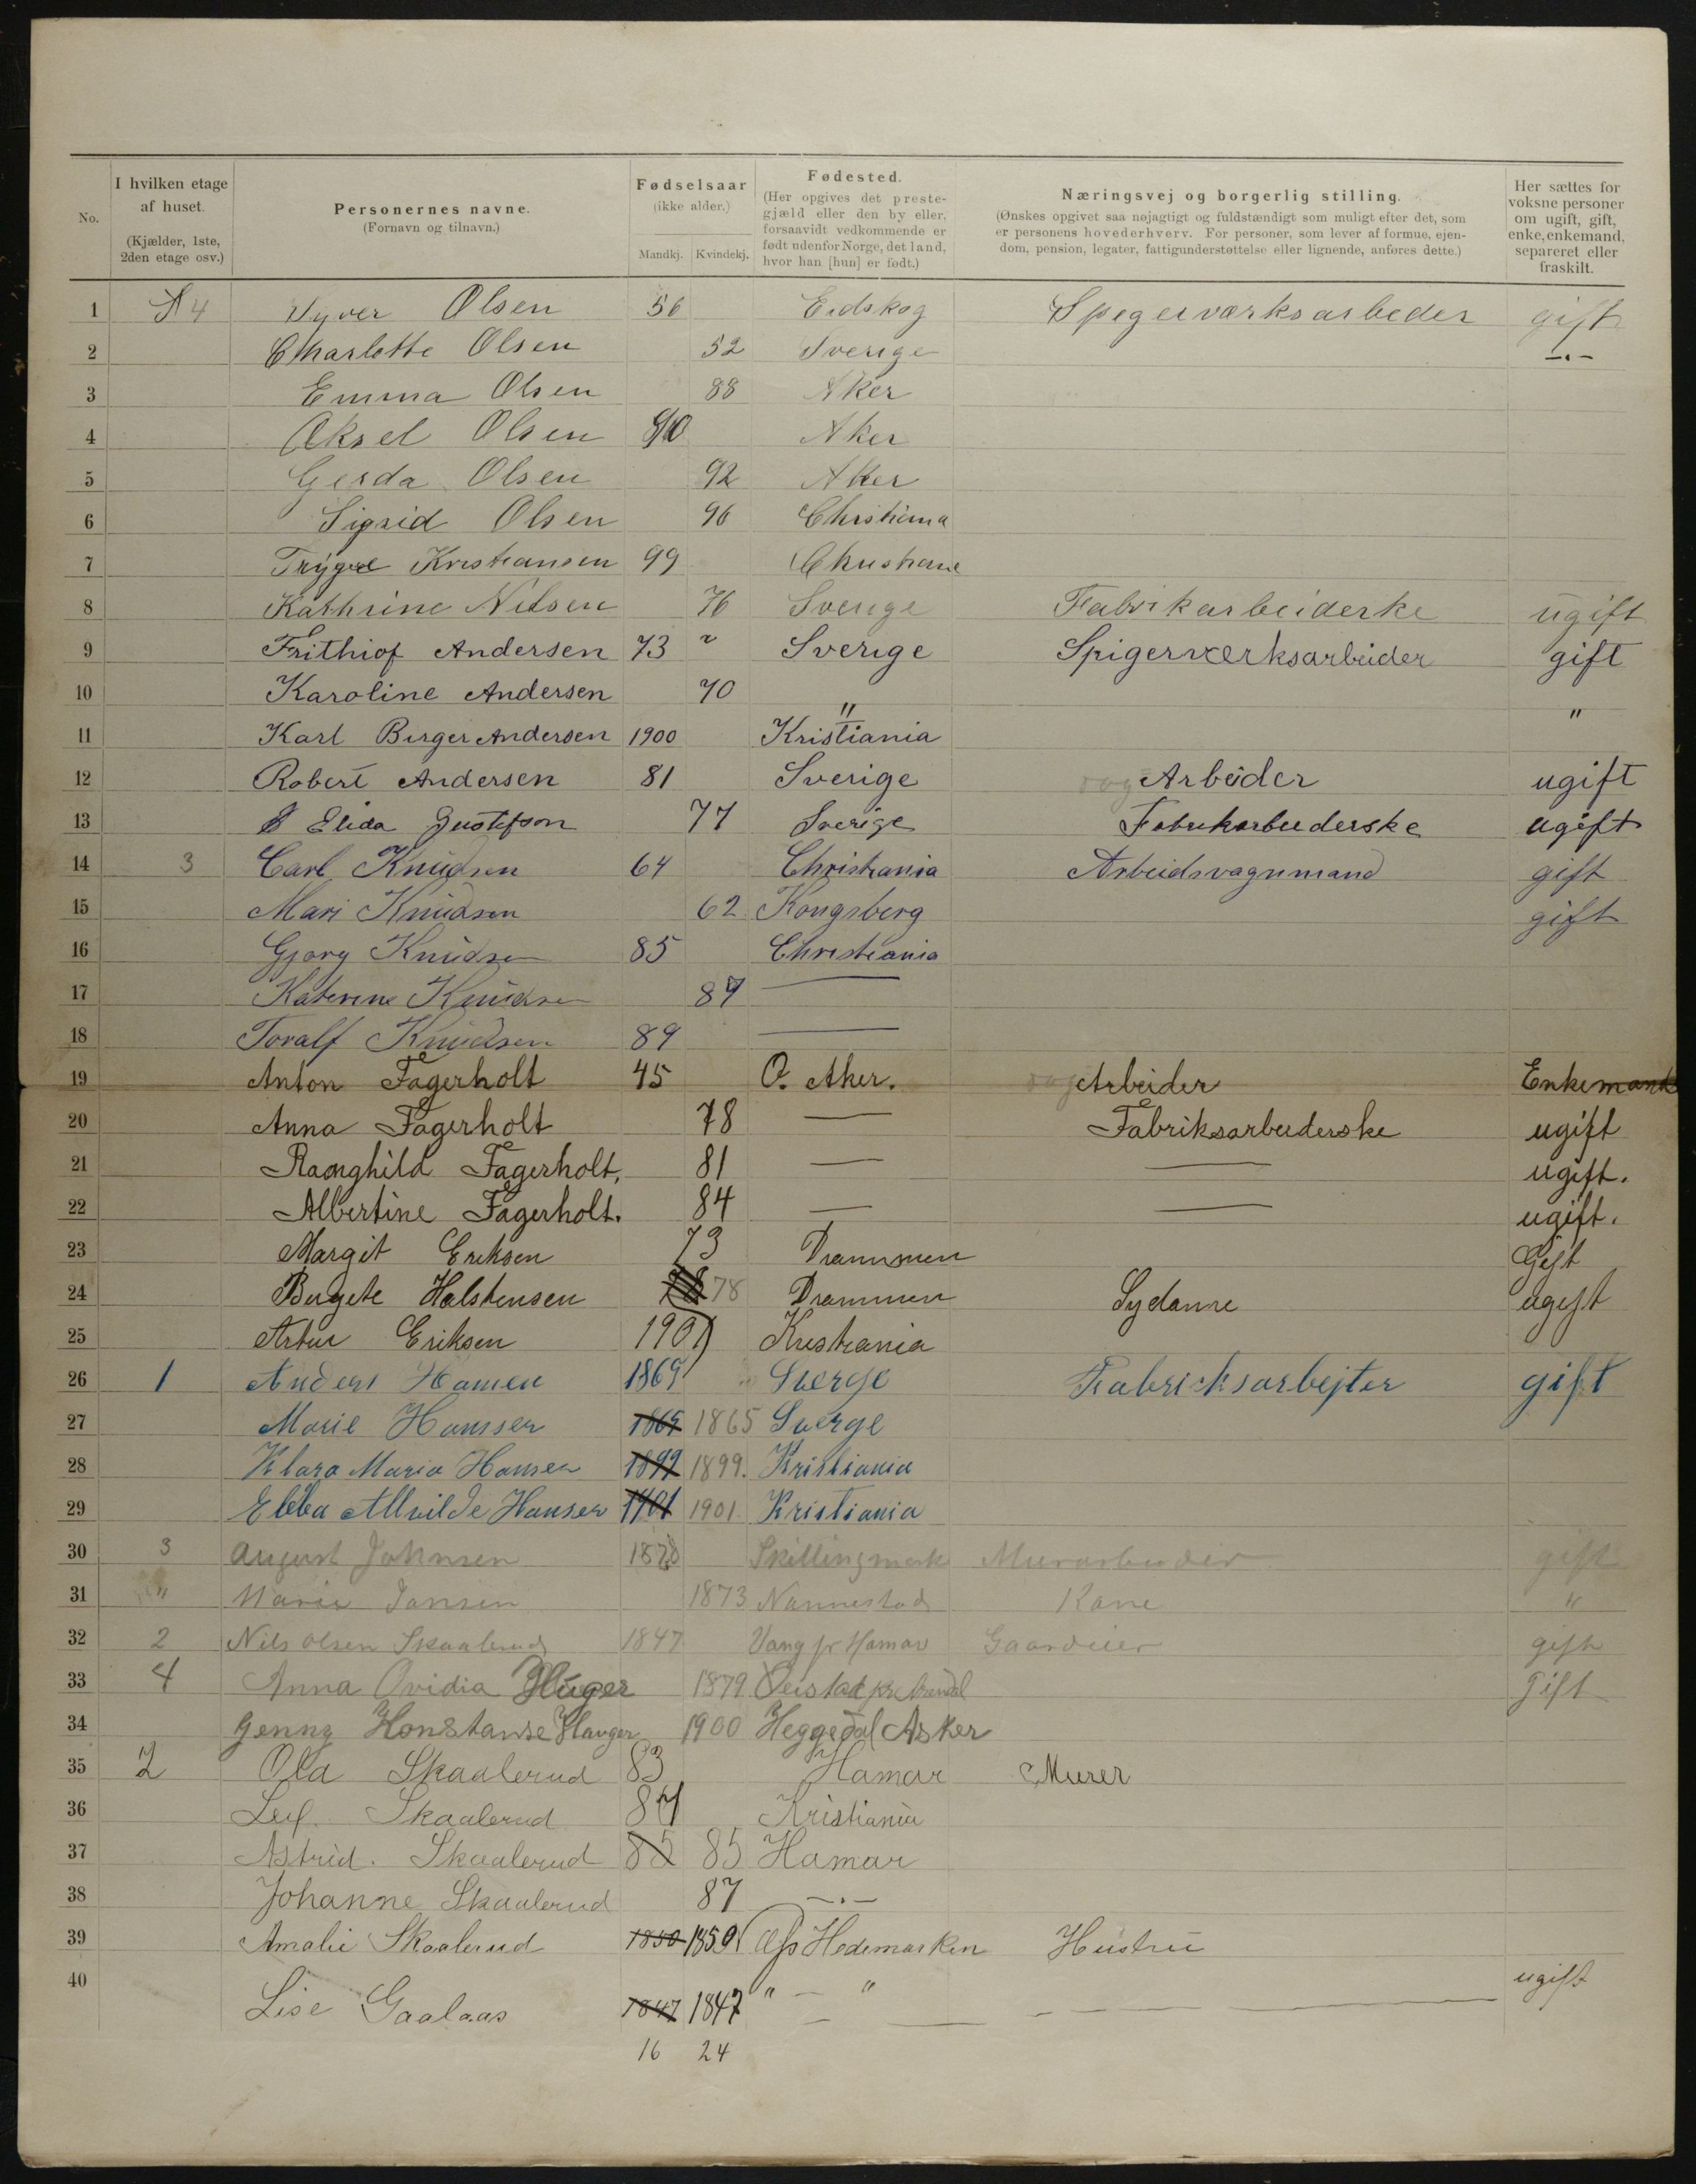 No.
I hvilken etage af huset. (Kjælder, 1ste, 2den etage osv.)
Personernes navne. (Fornavn og tilnavn.)
Fødselsaar (ikke alder.) Mandkj. Kvindekj.
Fødested. (Her opgives det prestegjæld eller den by eller, forsaavidt vedkommende er født udenfor Norge, det land, hvor han [hun] er født.)
Næringsvej og borgerlig stilling. (Ønskes opgivet saa nøjagtigt og fuldstændigt som muligt efter det, som er personens hovederhverv. For personer, som lever af formue, ejendom, pension, legater, fattigunderstøttelse eller lignende, anføres dette.)
Her sættes for voksne personer om ugift, gift, enke, enkemand, separeret eller fraskilt.
1 4 Olsen 56 Eidskog Spegerværksarbeder gift
2 Charlotte Olsen 52 Sverige —.—
3 Emma Olsen 88 Aker
4 Aksel Olsen 90 Aker
5 Gerda Olsen 92 Aker
6 Sigrid Olsen 96 Christiania
7 Trygve Kristiansen 99 Christiania
8 Kathrine Nilsen 76 Sverige Fabrikarbeiderke ugift
9 Frithiof Andersen 73 Sverige Spigerværksarbeider gift
10 Karoline Andersen 70 " "
11 Karl Birger Andersen 1900 Kristiania
12 Robert Andersen 81 Sverige Arbeider ugift
13 Elida Gustefson 77 Sverige Fabrikarbeiderske ugift
14 3 Carl Knudsen 64 Christiania Arbeidsvognmand gift
15 Mari Knudsen 62 Kongsberg gift
16 Gjorg Knudsen 85 Christiania
17 Katerine Knudsen 87 —
18 Toralf Knudsen 89 —
19 Anton Fagerholt 45 O. Aker. Arbeider Enkemand
20 Anna Fagerholt 78 — Fabriksarbeiderske ugift
21 Ranghild Fagerholt, 81 — — ugift.
22 Albertine Fagerholt. 84 — — ugift.
23 Margit Eriksen 73 Drammen Gift
24 Birgete Halstensen 78 Drammen Sydame ugift
25 Artur Eriksen 1901 Kristiania
26 1 Anders Hansen 1869 Sverge Fabricksarbejter gift
27 Marie Hansser 1865 1865 Sverge
28 Klara Maria Hansen 1899 1899. Kristiania
29 Ebba Allvilde Hanser 1901 1901 Kristiania
30 3 August Johnsen 1878 Skillingmark Murarbeider gift
31 " Marie Jansen 1873 Nannestad Kone "
32 2 Nils Olsen Skaalerud 1847 Vang pr Hamar Gaardeier gift
33 4 Anna Ovidia 1879 Gift
34 Genny Konstanse Hauger 1900 Heggedal Asker
35 2 Ola Skaalerud 83 Hamar Murer
36 Leif Skaalerud 84 Kristiania
37 Astrid. Skaalerud 85 85 Hamar
38 Johanne Skaalerud 87 —.—
39 Amalie Skaalerud 1850 1850 Hedemarken Hustru
40 Lise Gaalaas 1847 1847 " — " — ugift
16 24